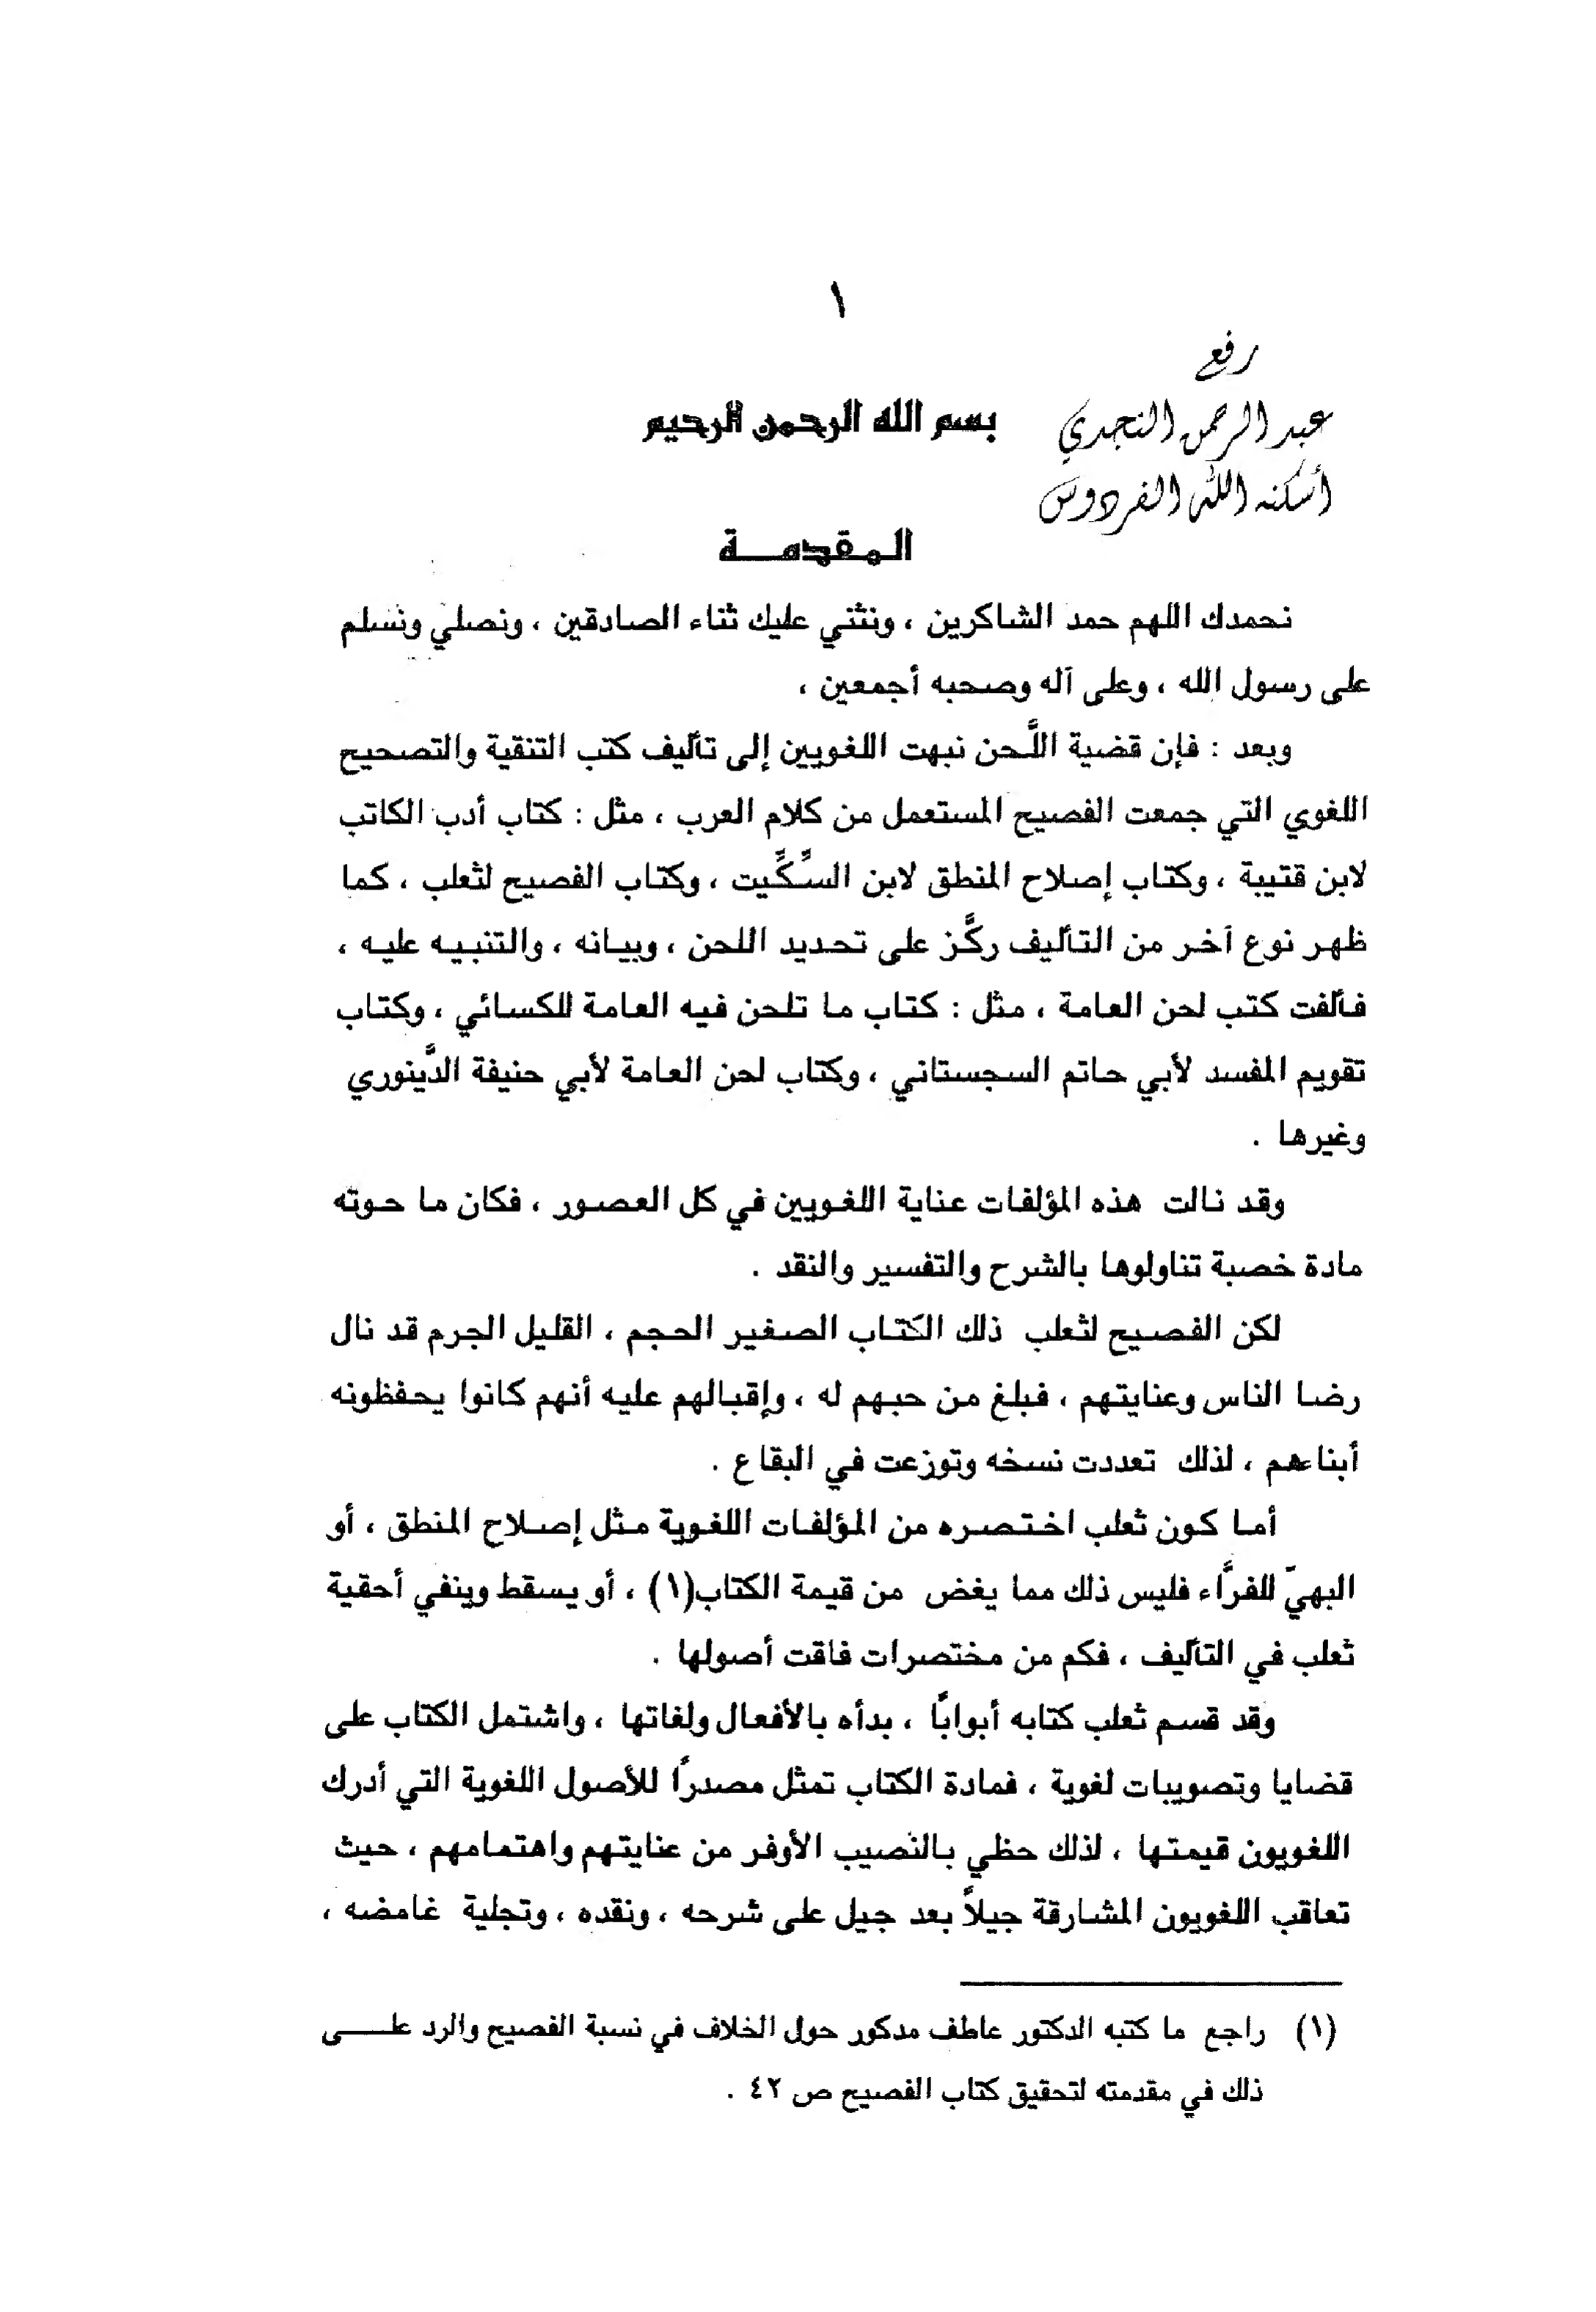 ١
رفع
عبد الرحمن النجدي
أسكنه الله الفردوس
بسم الله الرحمن الرحيم
المقدمــة
نحمدك اللهم حمد الشاكرين ، ونثني عليك ثناء الصادقين ، ونصلي ونسلم
على رسول الله ، وعلى آله وصحبه أجمعين ،
وبعد : فإن قضية اللَّحن نبهت اللغويين إلى تأليف كتب التنقية والتصحيح
اللغوي التي جمعت الفصيح المستعمل من كلام العرب ، مثل : كتاب أدب الكاتب
لابن قتيبة ، وكتاب إصلاح المنطق لابن السِّكِّيت ، وكتاب الفصيح لثعلب ، كما
ظهر نوع آخر من التأليف ركَّز على تحديد اللحن ، وبيانه ، والتنبيه عليه ،
فألفت كتب لحن العامة ، مثل : كتاب ما تلحن فيه العامة للكسائي ، وكتاب
تقويم المفسد لأبي حاتم السجستاني ، وكتاب لحن العامة لأبي حنيفة الدَّينوري
وغيرها .
وقد نالت هذه المؤلفات عناية اللغويين في كل العصور ، فكان ما حوته
مادة خصبة تناولوها بالشرح والتفسير والنقد .
لكن الفصيح لثعلب ذلك الكتاب الصغير الحجم ، القليل الجرم قد نال
رضا الناس وعنايتهم ، فبلغ من حبهم له ، وإقبالهم عليه أنهم كانوا يحفظونه
أبناءهم ، لذلك تعددت نسخه وتوزعت في البقاع .
أما كون ثعلب اختصره من المؤلفات اللغوية مثل إصلاح المنطق ، أو
البهيّ للفرَّاء فليس ذلك مما يغض من قيمة الكتاب(١) ، أو يسقط وينفي أحقية
ثعلب في التأليف ، فكم من مختصرات فاقت أصولها .
وقد قسم ثعلب كتابه أبوابًا ، بدأه بالأفعال ولغاتها ، واشتمل الكتاب على
قضايا وتصويبات لغوية ، فمادة الكتاب تمثل مصدرًا للأصول اللغوية التي أدرك
اللغويون قيمتها ، لذلك حظي بالنصيب الأوفر من عنايتهم واهتمامهم ، حيث
تعاقب اللغويون المشارقة جيلاً بعد جيل على شرحه ، ونقده ، وتجلية غامضه ،
(١) راجع ما كتبه الدكتور عاطف مدكور حول الخلاف في نسبة الفصيح والرد علــى
ذلك في مقدمته لتحقيق كتاب الفصيح ص ٤٢ .